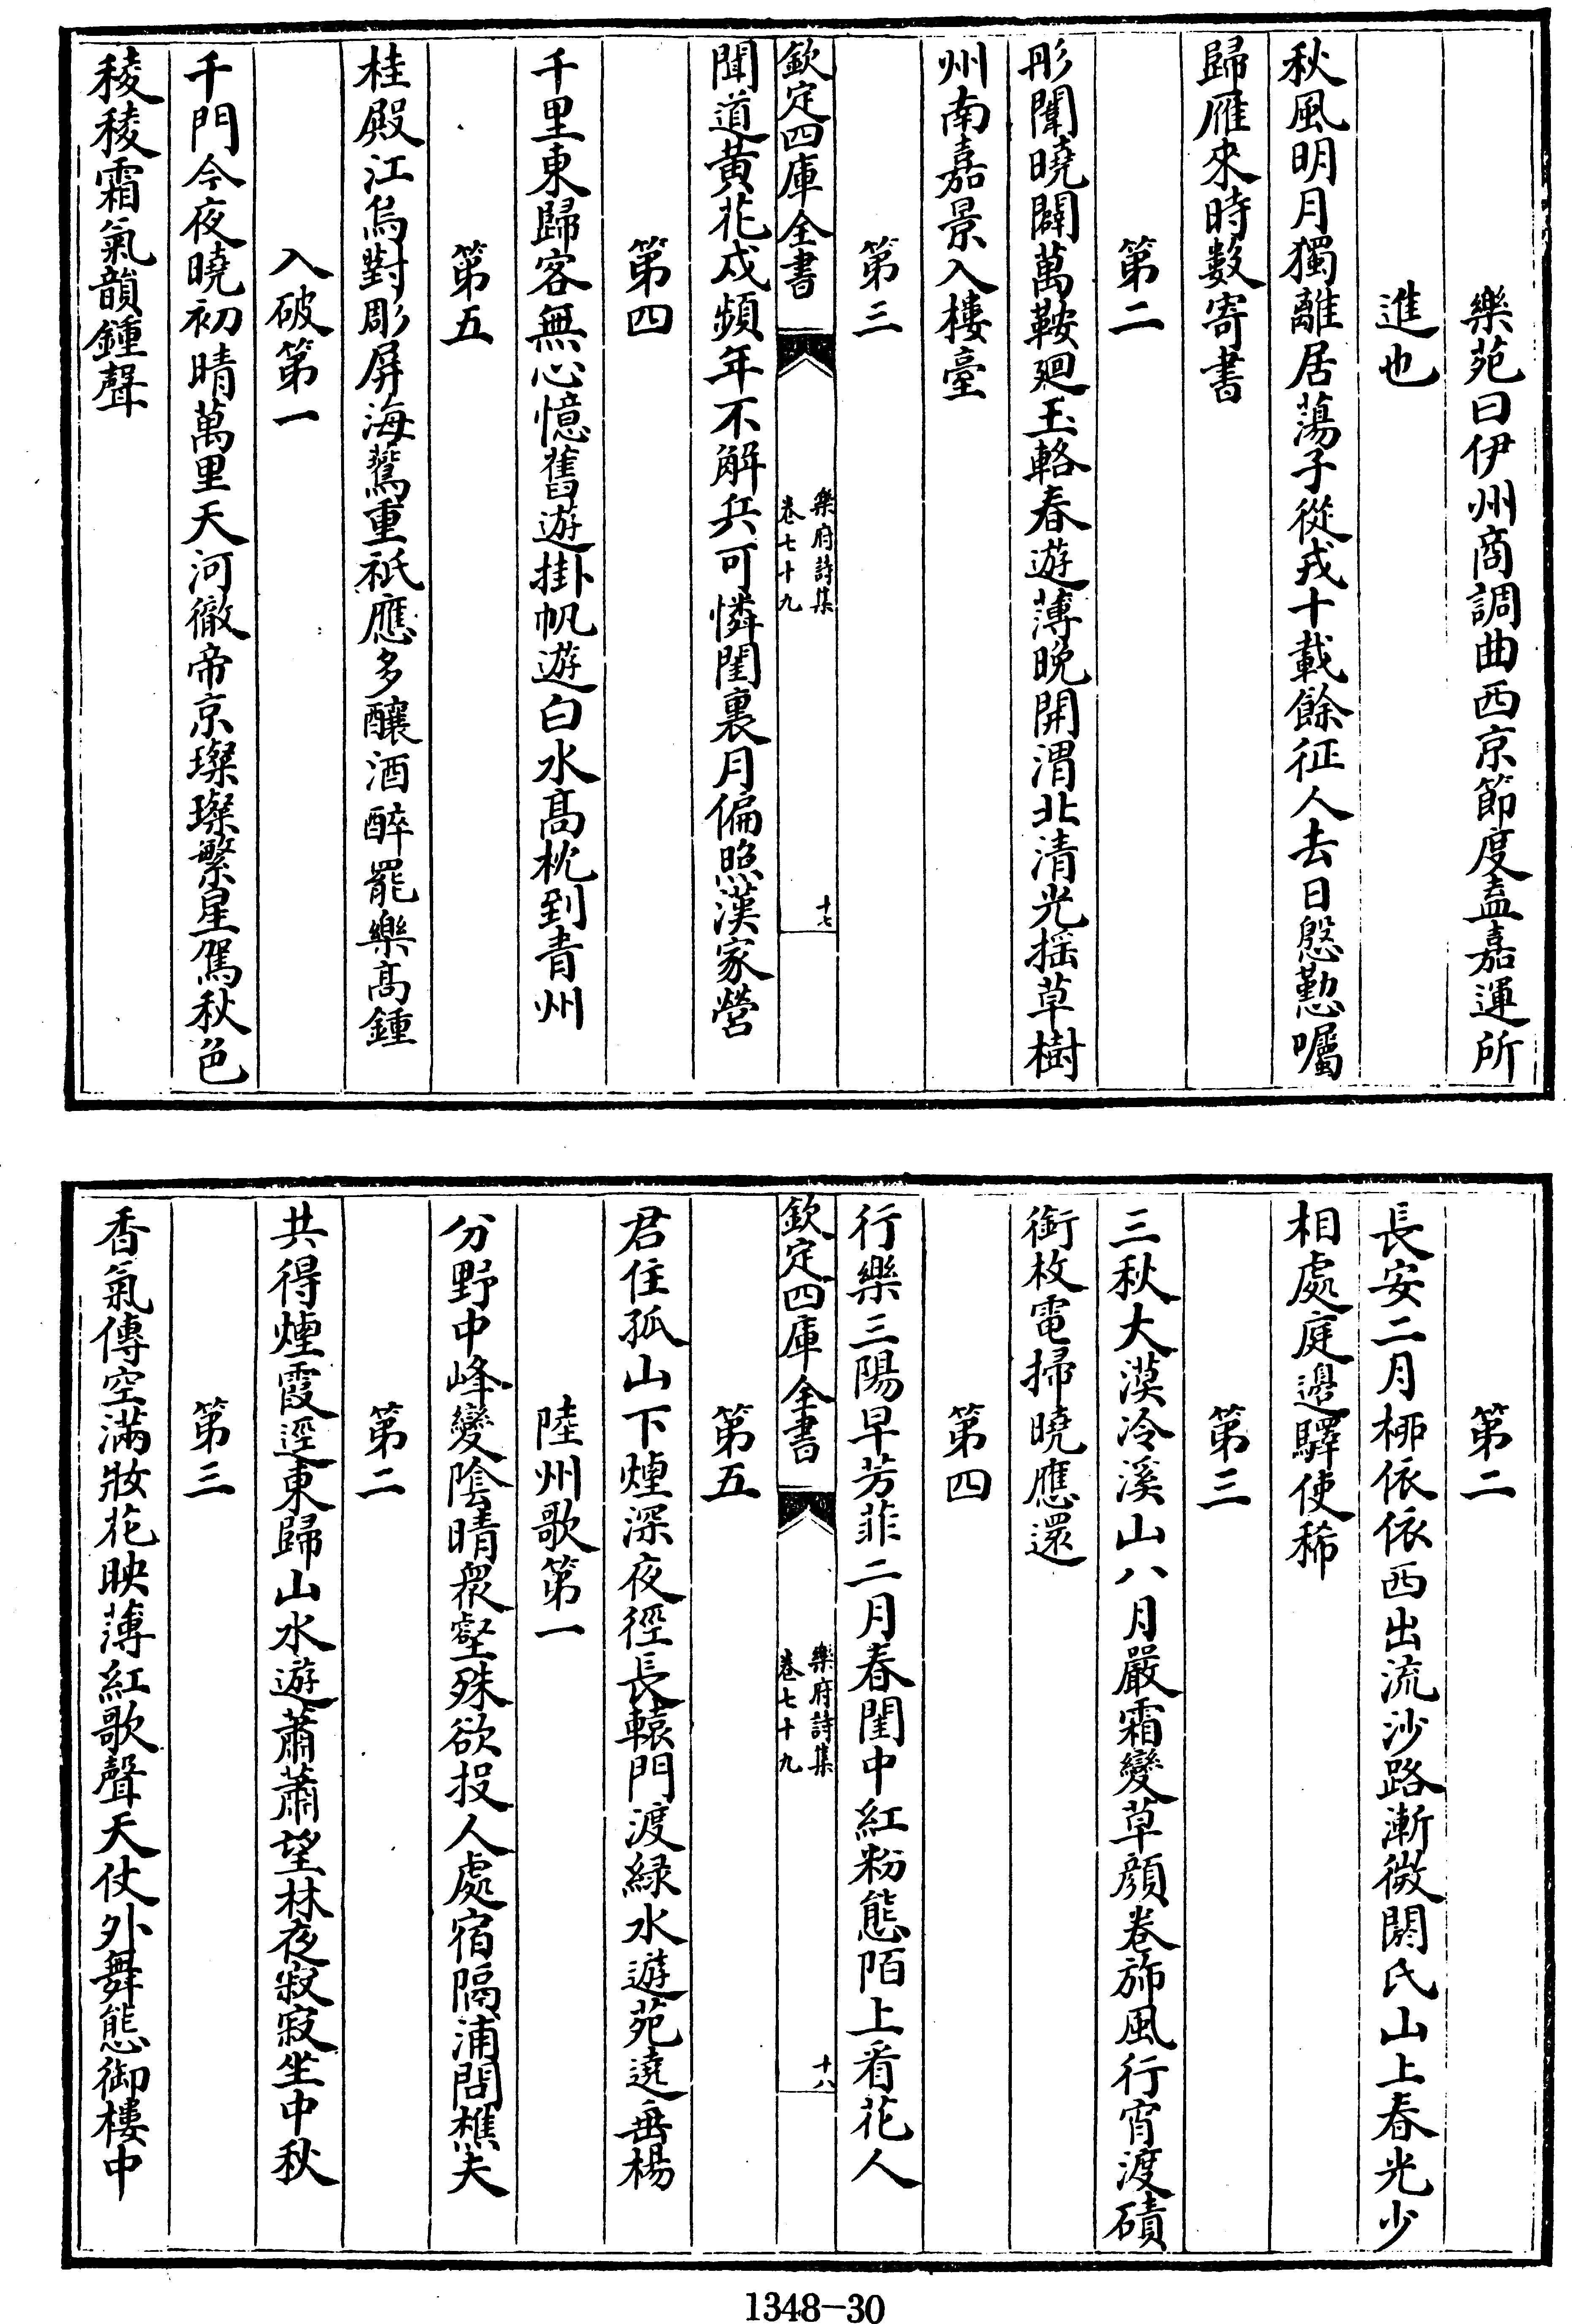 樂苑曰伊州商調曲西京節度葢嘉運所
進也
秋風明月獨離居蕩子從戎十載餘征人去日慇懃囑
歸雁來時數寄書
第二
彤闈曉闢萬鞍廻玉輅春遊薄晚開渭北清光揺草樹
州南嘉景入樓臺
第三
欽定四庫全書
樂府詩集
卷七十九
十七
聞道黄花戍頻年不解兵可憐閨裏月偏照漢家營
第四
千里東歸客無心憶舊遊掛帆遊白水髙枕到青州
第五
桂殿江烏對彫屏海鷰重祇應多釀酒醉罷樂髙鍾
入破第一
千門今夜曉初晴萬里天河徹帝京璨璨繁星駕秋色
稜稜霜氣韻鍾聲
第二
長安二月栁依依西出流沙路漸微閼氏山上春光少
相處庭邉驛使稀
第三
三秋大漠冷溪山八月嚴霜變草顔卷斾風行宵渡磧
銜枚電掃曉應還
第四
行樂三陽早芳菲二月春閨中紅粉態陌上㸔花人
欽定四庫全書
樂府詩集
卷七十九
十八
第五
君住孤山下煙深夜徑長轅門渡緑水遊苑遶垂楊
陸州歌第一
分野中峰變隂晴衆壑殊欲投人處宿隔浦問樵夫
第二
共得煙霞逕東歸山水遊蕭蕭望林夜寂寂坐中秋
第三
香氣傳空滿妝花映薄紅歌聲天仗外舞態御樓中
1348-30